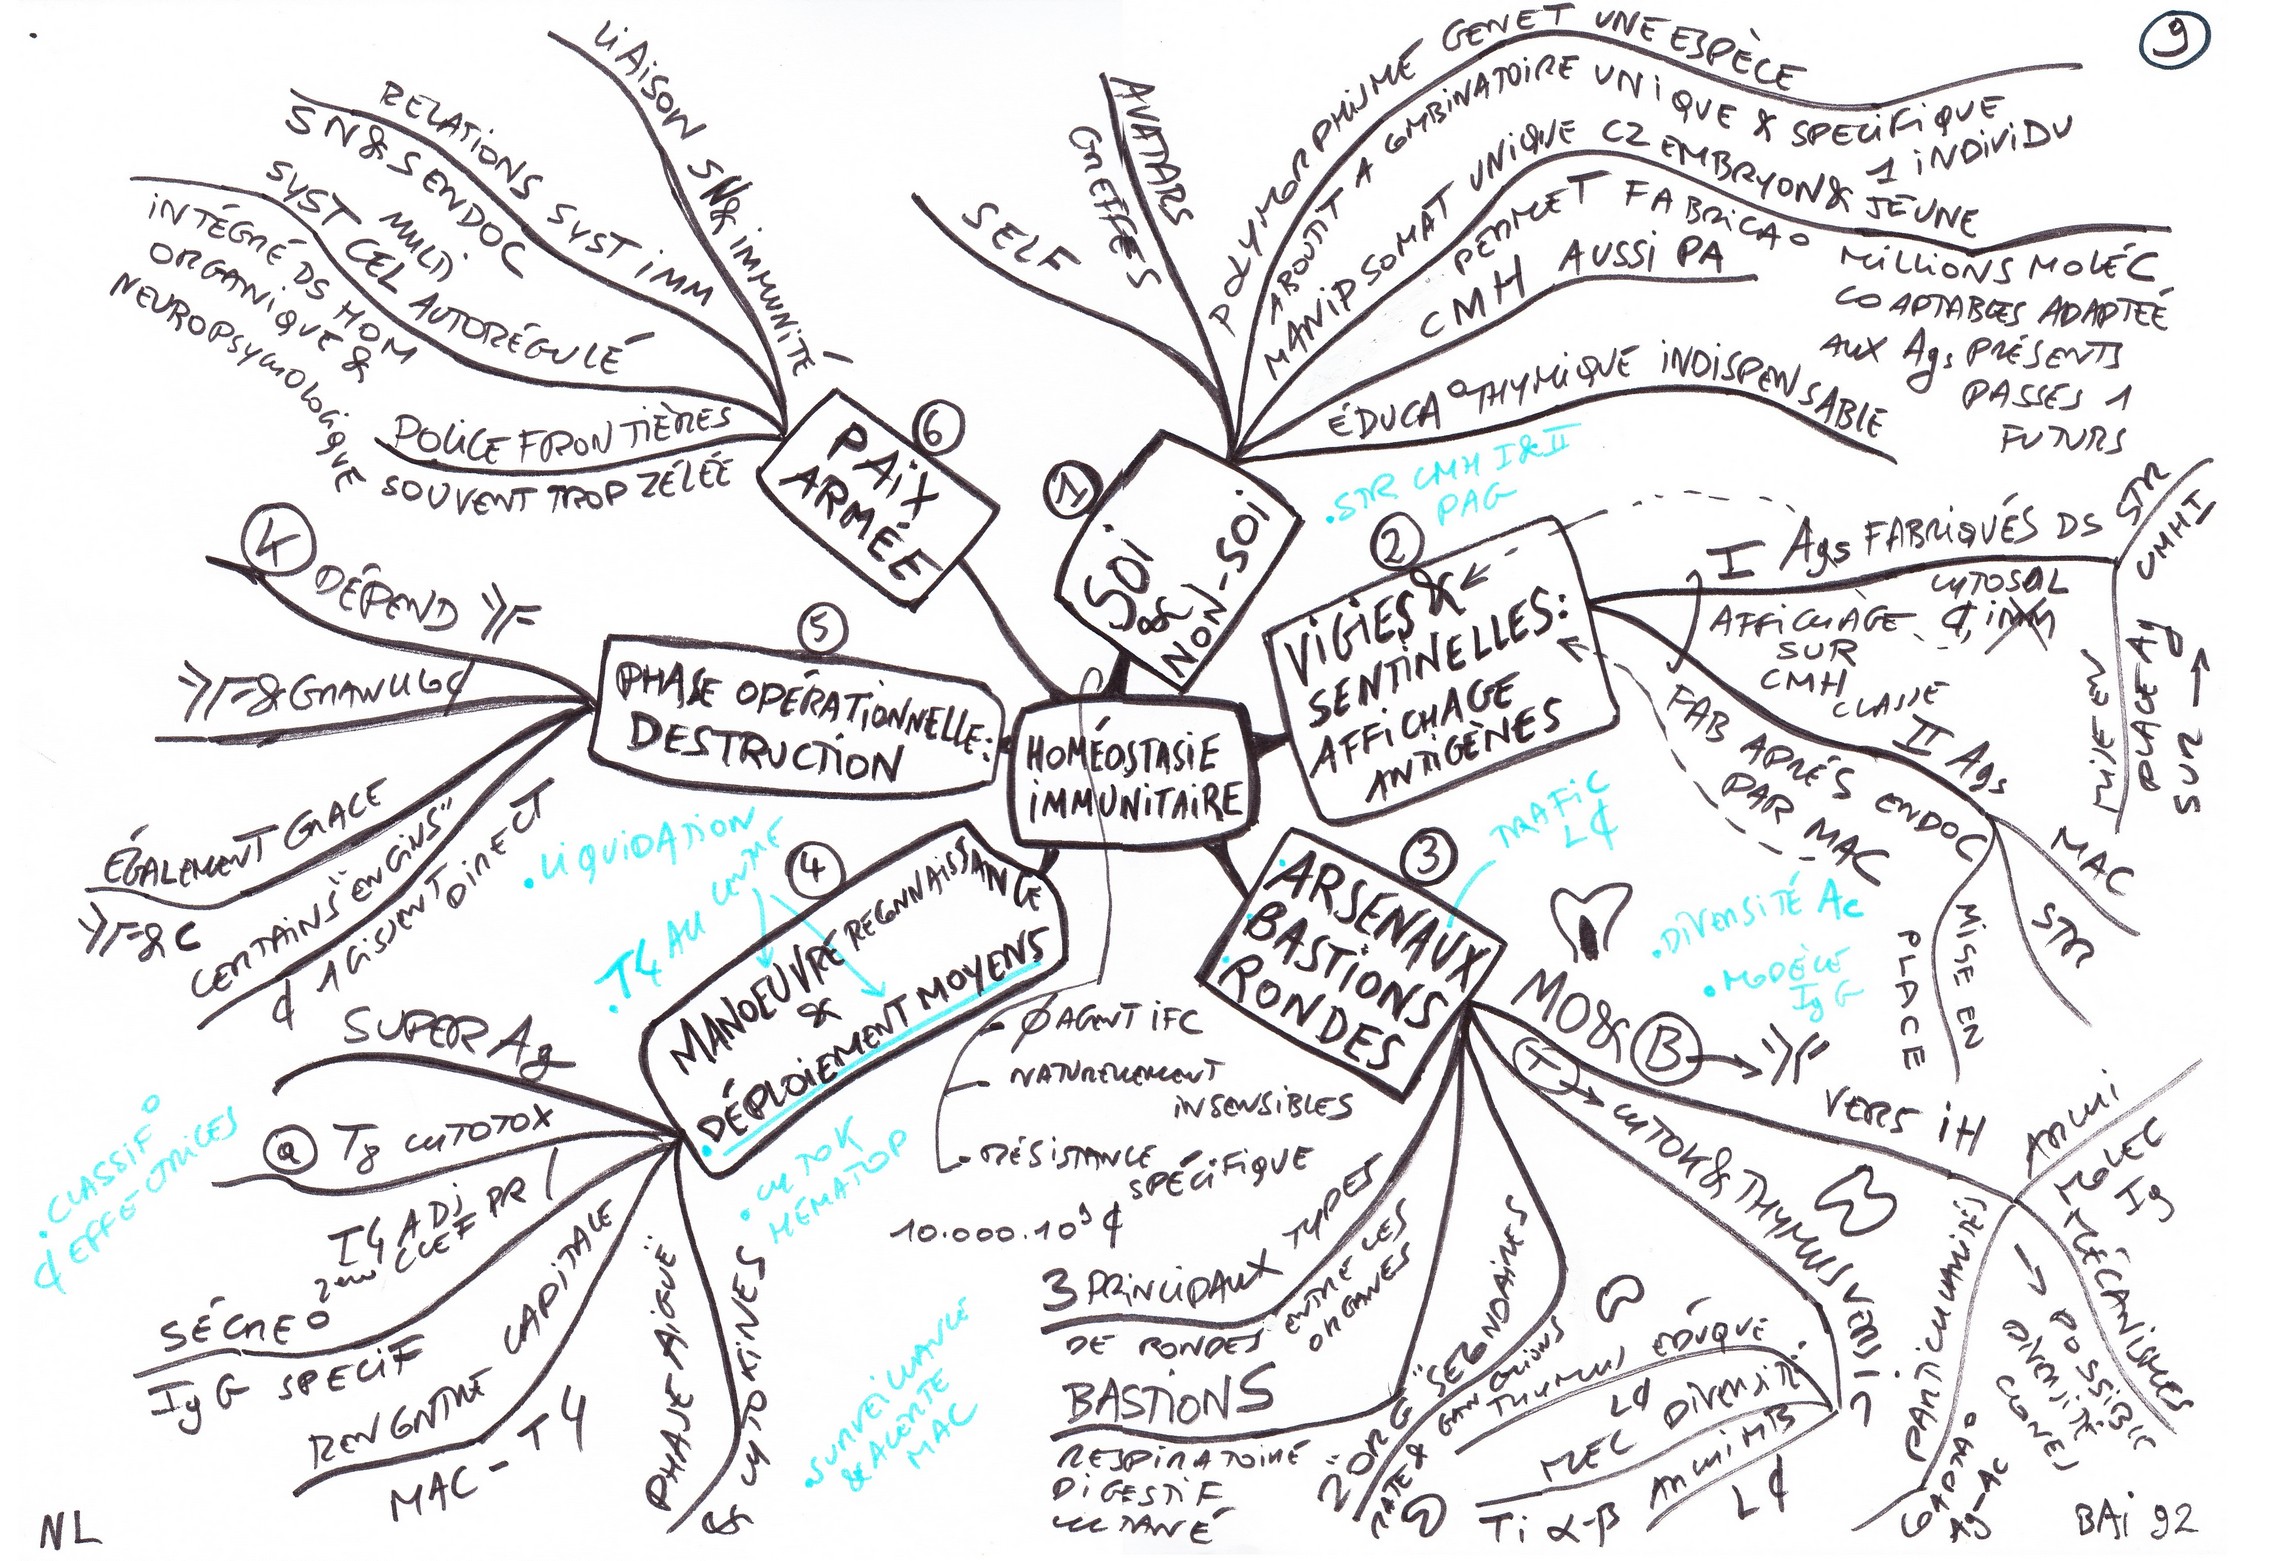 9
HOMÉOSTASIE
IMMUNITAIRE
1
SOI
NON-SOI
SELF
AVATARS
GREFFES
POLYMORPHISME GENET UNE ESPÈCE
ABOUTIT A COMBINATOIRE UNIQUE & SPECIFIQUE
1 INDIVIDU
MANIP SOMAT UNIQUE CZ EMBRYON & JEUNE
PERMET FABRICAO
MILLIONS MOLÉC
COAPTABLES ADAPTÉE
AUX Ags PRÉSENTS
PASSÉS 1
FUTURS
CMH AUSSI PA
ÉDUCAO THYMIQUE INDISPENSABLE
.STR CMH I & II
PAG
2
VIGIES &
SENTINELLES:
AFFICHAGE
ANTIGÈNES
I Ags FABRIQUÉS DS
CYTOSOL
AFFICHAGE
SUR
CMH
CLASSE
II Ags
FAB APRÉS ENDOC
PAR MAC
STR
CMH I
MISE EN
PLACE Ag
SUR
MAC
STR
MISE EN
PLACE
3
ARSENAUX
BASTIONS
RONDES
TRAFIC
L¢
.DIVERSITÉ Ac
.MODÈLE
IgG
MO & B
VERS IH
T → CYTOK & THYMUS VERS IC
ARCHI
MOLEC
Ig
MÉCANISMES
→ POSSIBLE
DIVERSITÉ
CLONES
PARTICULARITÉS
COAPTAO
Ag-Ac
THYMUS ÉDUQUE
L¢
MEC DIVERSIT
ARCHI MB
L¢
Ti α-β
2 ORG "SECONDAIRES"
RATE & GANGLIONS
3 PRINCIPAUX TYPES
DE RONDES ENTRE LES
ORGANES
BASTIONS
RESPIRATOIRE
DIGESTIF
CUTANÉ
Ø AGENT IFC
NATURELLEMENT
INSENSIBLES
RÉSISTANCE
SPÉCIFIQUE
10.000.10⁹ ¢
4
MANOEUVRE RECONNAISSANCE
&
DÉPLOIEMENT MOYENS
.LIQUIDATION
.T4 AU CENTRE
.CYTOK
HÉMATOP
.SURVEILLANCE
& ALERTE
MAC
.CLASSIFO
¢ EFFECTRICES
SUPER Ag
a T8 CYTOTOX
T4 ADJ PR
2eme CLEF
SÉCREO
IgG SPECIF
RENCONTRE CAPITALE
MAC-T4
PHASE AIGUË
& CYTOKINES
5
PHASE OPÉRATIONNELLE:
DESTRUCTION
4 DÉPEND
& GRANULO¢
ÉGALEMENT GRACE
& C
CERTAINS "ENGINS"
¢ AGISSENT DIRECT
6
PAIX
ARMÉE
LIAISON SN & IMMUNITÉ
RELATIONS SYST IMM
SN & S ENDOC
SYST MULTI
CEL AUTORÉGULÉ
INTÉGRÉ DS HOM
ORGANIQUE &
NEUROPSYCHOLOGIQUE
POLICE FRONTIÈRES
SOUVENT TROP ZÉLÉE
NL
BAI 92